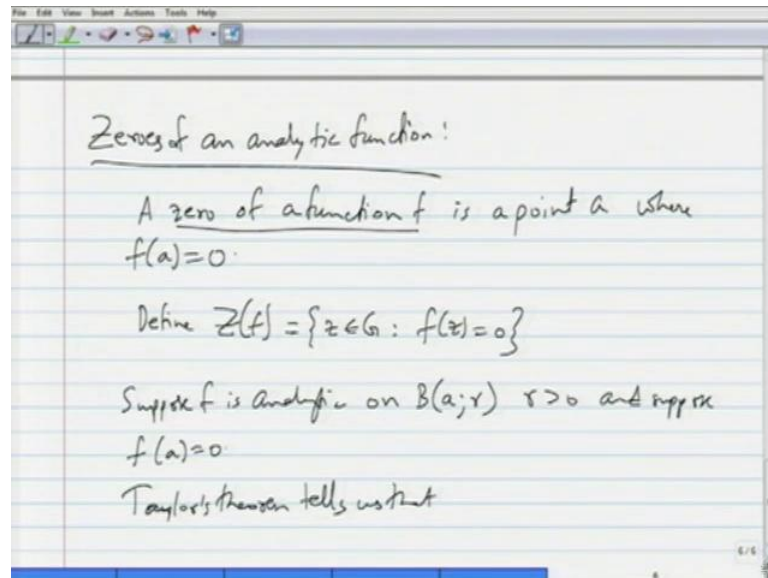 File Edit View Insert Actions Tools Help
Zeroes of an analytic function:
A zero of a function f is a point a where
f(a)=0.
Define Z(f) = {z ∈ G : f(z)=0}
Suppose f is analytic on B(a;r) r>0 and suppose
f(a)=0.
Taylor's theorem tells us that
6/6